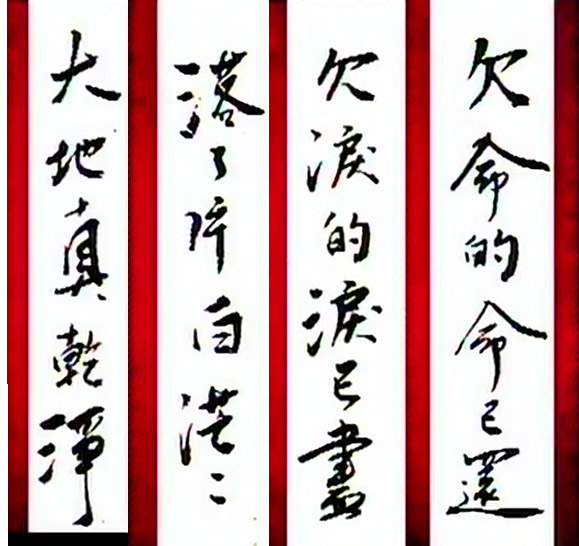 欠命的命已還
欠淚的淚已盡
落了片白茫々
大地真乾淨